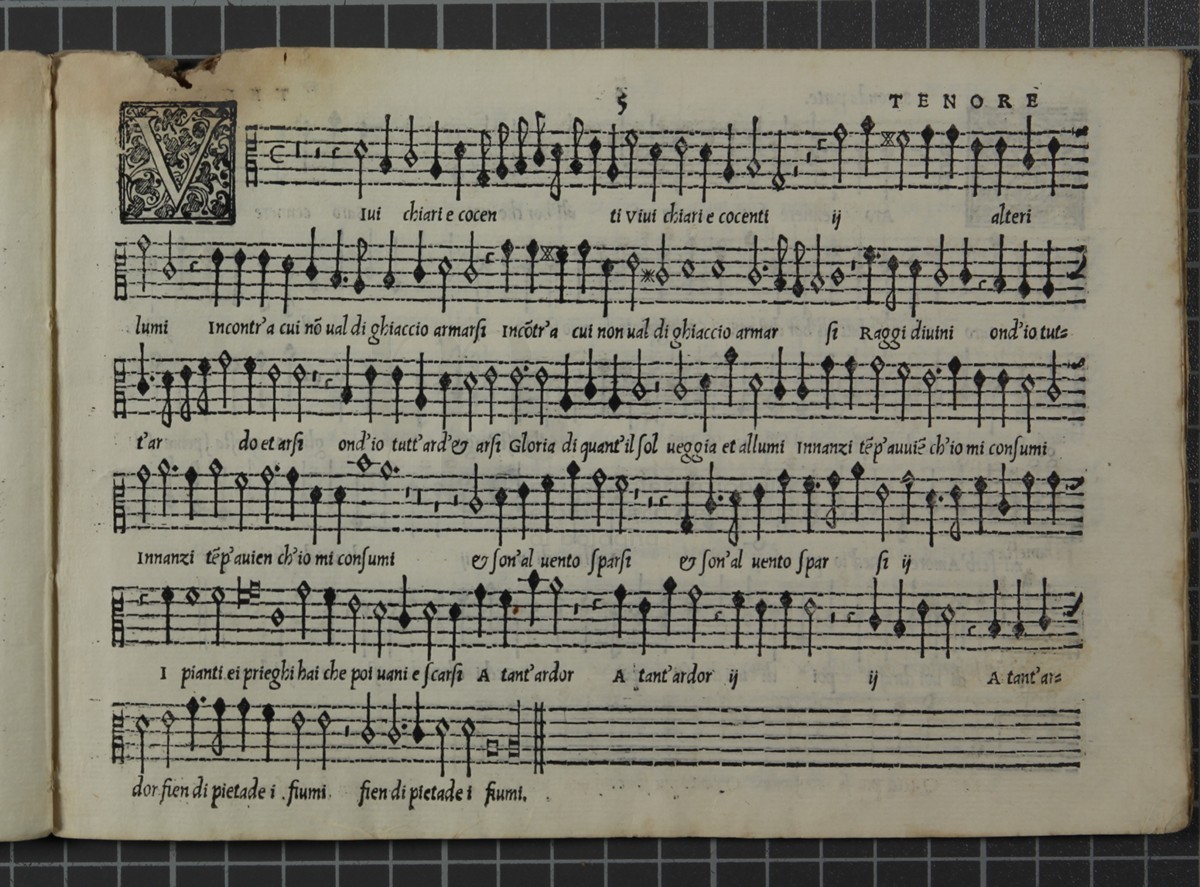 5 TENORE
VIui chiari e cocen ti Viui chiari e cocenti ij alteri
lumi Incontr'a cui nõ ual di ghiaccio armarſi Incõtr'a cui non ual di ghiaccio armar ſi Raggi diuini ond'io tut=
t'ar do et arſi ond'io tutt'ard'& arſi Gloria di quant'il ſol ueggia et allumi Innanzi tẽp'auuiẽ ch'io mi conſumi
Innanzi tẽp'auien ch'io mi conſumi & ſon'al uento ſparſi & ſon'al uento ſpar ſi ij
I pianti ei prieghi hai che poi uani e ſcarſi A tant'ardor A tant'ardor ij ij A tant'ar=
dor fien di pietade i fiumi fien di pietade i fiumi.